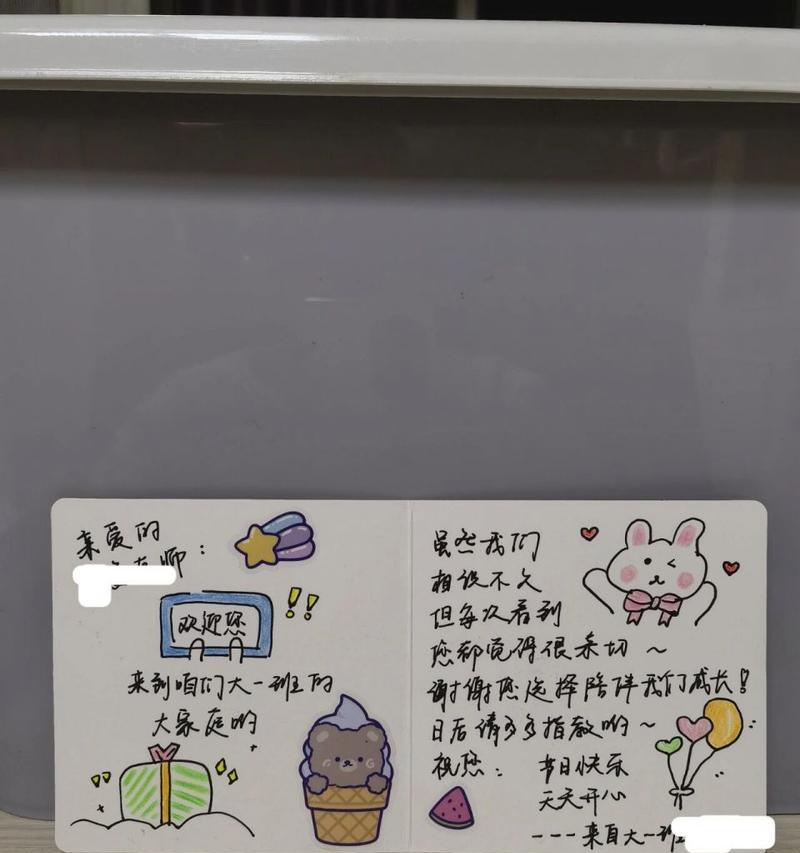 亲爱的
老师：
欢迎您
来到咱们大一班的
大家庭哟
虽然我们
相伩不久
但每次看到
您都觉得很亲切～
谢谢您选择陪伴我们成长！
日后请多多指教哟～
祝您： 节日快乐
天天开心
----来自大一班